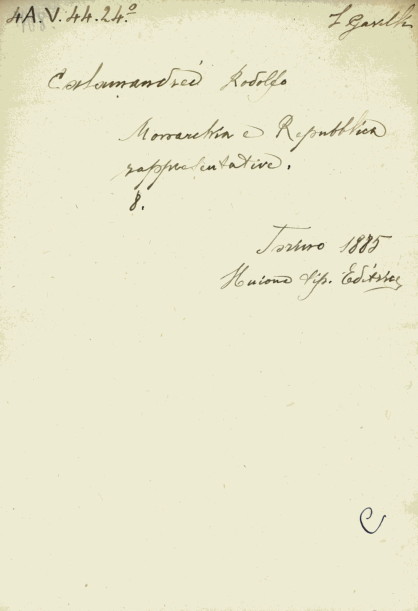 4A.V.44.24º
Calamandrei Rodolfo
Monarchia e Repubblica
rappresentative.
8.
Torino 1885
Unione Tip. Editrice